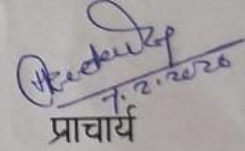 7.2.2020
प्राचार्य